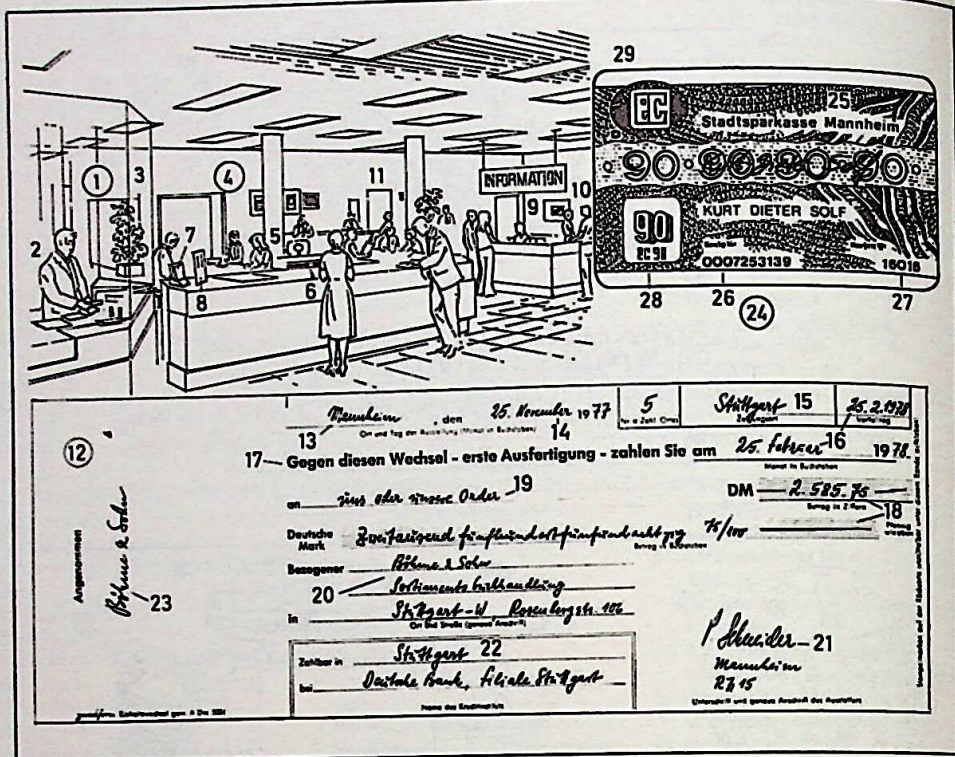 29
EC
25
Stadtsparkasse Mannheim
1
3
4
11
INFORMATION
10
9
2
7
5
8
6
90
EC 90
KURT DIETER SOLF
0007253139
16016
28
26
24
27
12
Mannheim, den 25. November 1977
5
Stuttgart 15
25.2.1978
13
14
17 Gegen diesen Wechsel - erste Ausfertigung - zahlen Sie am 25. Februar 16 1978
Monat in Buchstaben
an uns oder unsere Order 19
DM 2.585.75
Betrag in Ziffern
18
Deutsche Mark Zweitausendfünfhundertfünfundachtzig 75/100
Betrag in Buchstaben
Bezogener Böhme & Sohn
20 Sortimentsbuchhandlung
in Stuttgart-W, Rosenbergstr. 106
Ort und Straße (genaue Anschrift)
Zahlbar in Stuttgart 22
bei Deutsche Bank, Filiale Stuttgart
Name des Kreditinstituts
P Schneider 21
Mannheim
Unterschrift und genaue Anschrift des Ausstellers
Angenommen
Böhme & Sohn
23